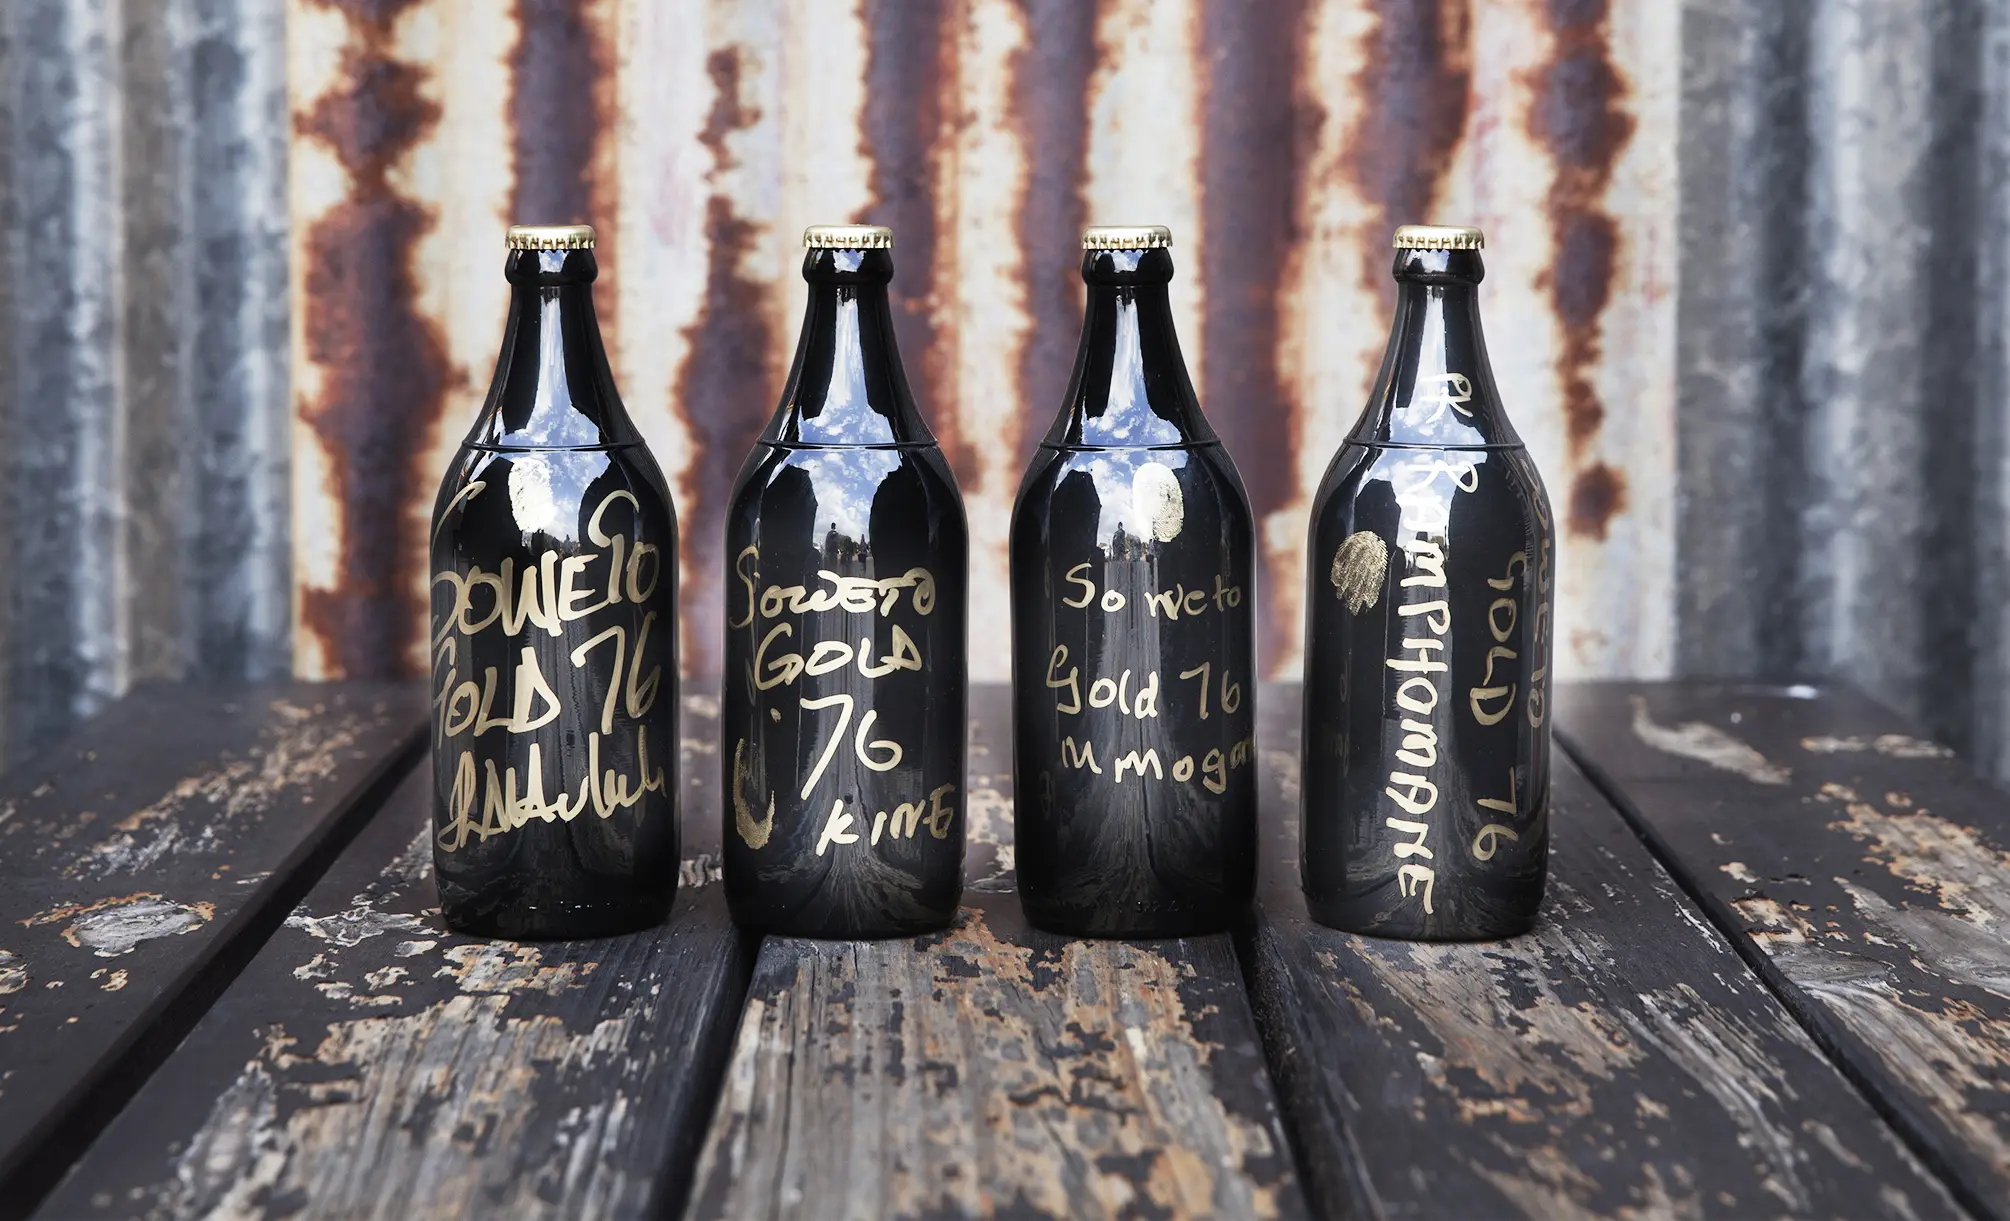 SOWETO
GOLD 76
SOWETO
GOLD
76
KING
Soweto
Gold 76
M mogar
PK RAMPHOMANE
SOWETO
GOLD 76